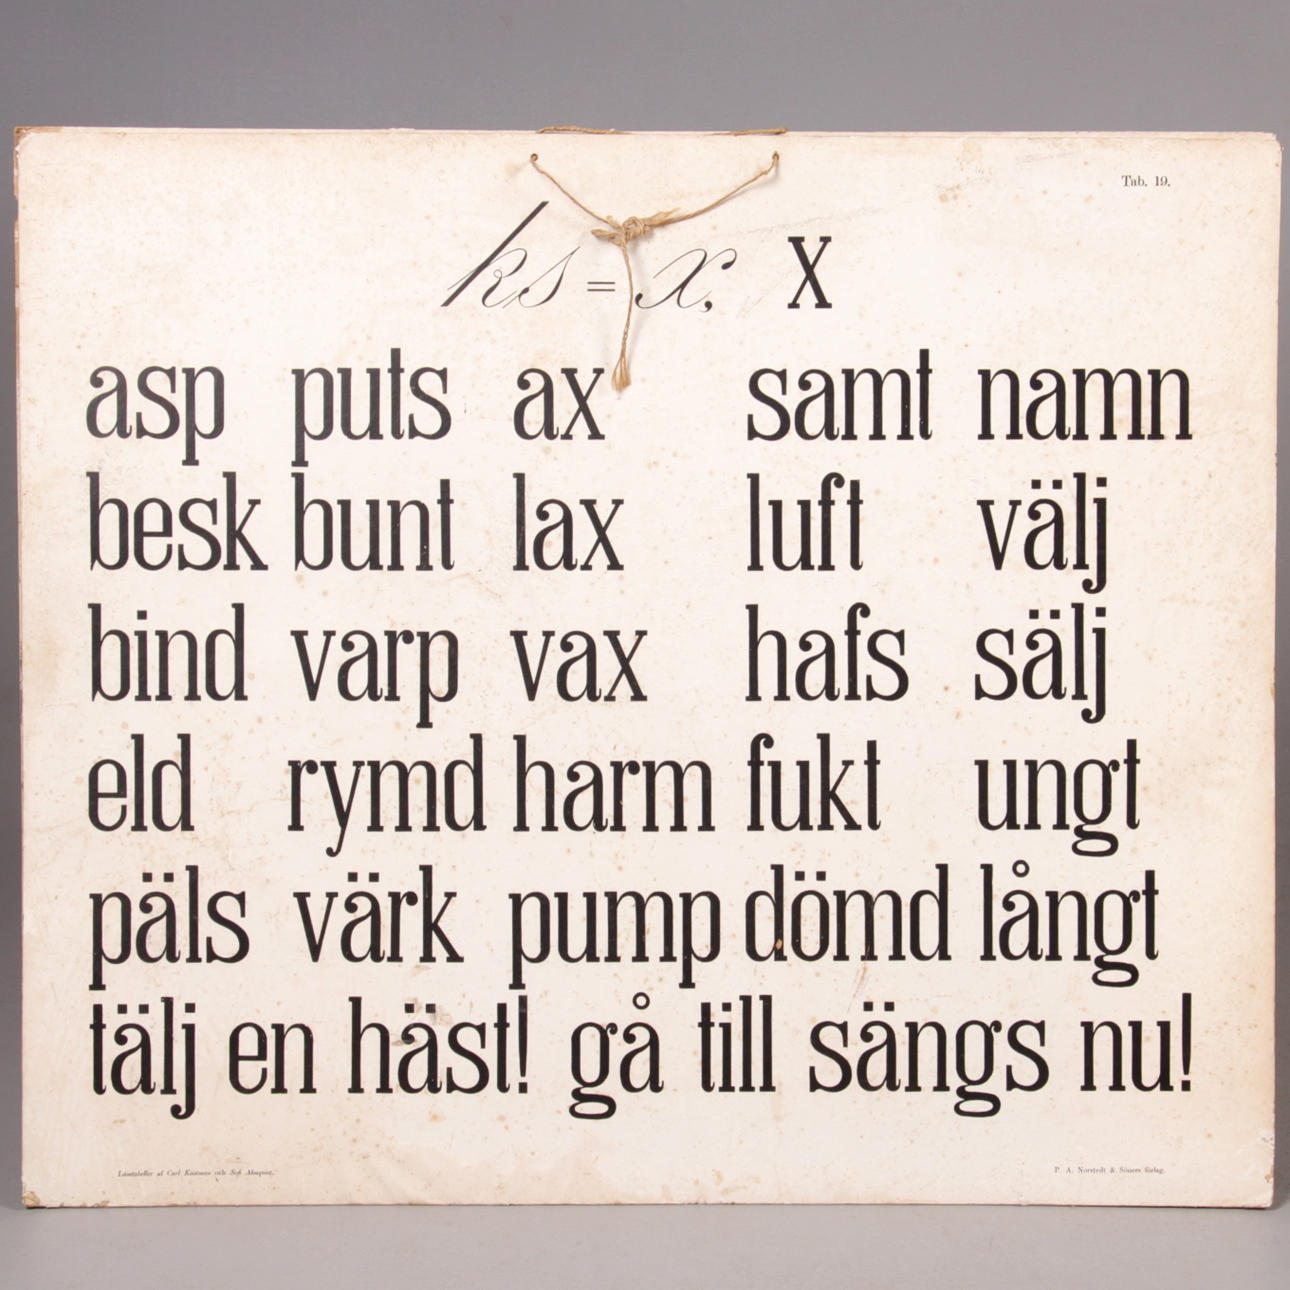 Tab. 19.
ks = x, x
asp puts ax samt namn
besk bunt lax luft välj
bind varp vax hafs sälj
eld rymd harm fukt ungt
päls värk pump dömd långt
tälj en häst! gå till sängs nu!
Läsetabeller af Carl Kastman och Sofi Almquist.
P. A. Norstedt & Söners förlag.